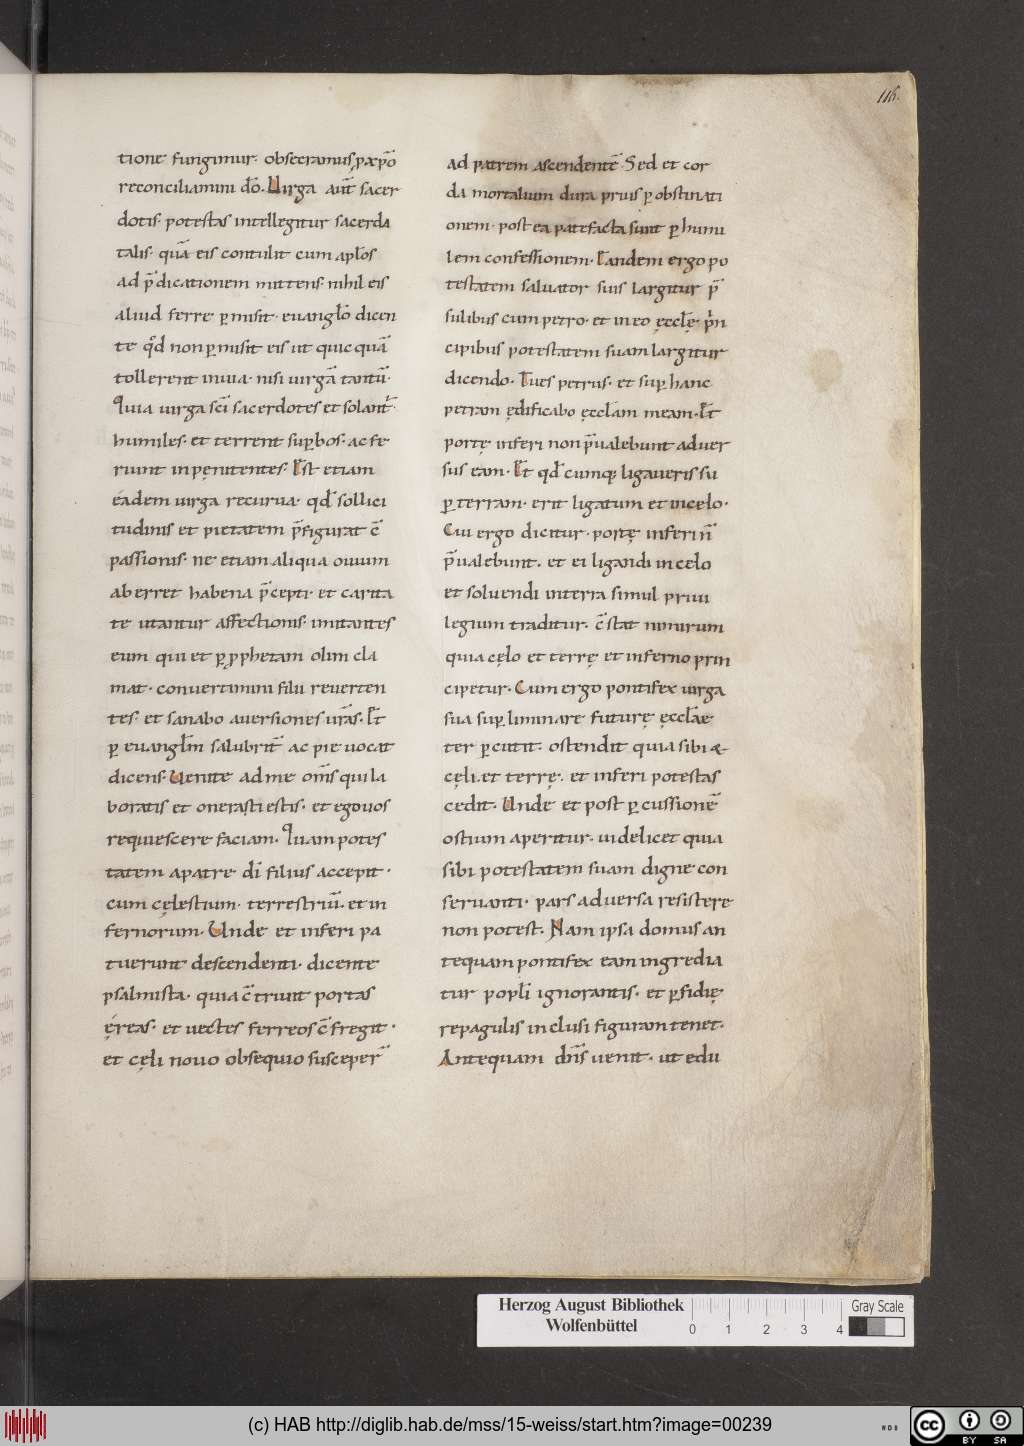 116.
tione fungimur. obsecramus, p xp̄o
reconciliamini dō. Uirga aut̄ sacer
dotis. potestas intellegitur sacerdo
talis. quā eis contulit cum apłos
ad p̄dicationem mittens. nihil eis
aliud ferre p̱misit. euangło dicen
te qđ non p̱misit eis ut quicquā
tollerent in uia. nisi uirgā tantū.
Quia uirga sc̄i sacerdotes et solant̄.
humiles. et terrent sup̱bos. ac fe
riunt inpęnitentes. Est etiam
eadem uirga recurua. qđ sollici
tudinis et pietatem p̄figurat c̄
passionis. ne etiam aliqua ouium
aberret habena p̄cepti. et carita
te utantur affectionis. imitantes
eum qui et p̱ pphetam olim cla
mat. conuertimini filii reuerten
tes. et sanabo auersiones ur̄as. Et
p̱ euangłm salubrit̄ ac pie uocat
dicens. Uenite ad me om̄s qui la
boratis et onerati estis. et ego uos
requiescere faciam. Quam potes
tatem a patre dī filius accepit.
cum cęlestium. terrestriū. et in
fernorum. Unde et inferi pa
tuerunt descendenti. dicente
psalmista. quia c̄triuit portas
ęreas. et uectes ferreos c̄fregit.
et cęli nouo obsequio susceper̄
ad patrem ascendentē. Sed et cor
da mortalium dura prius p̱ obstinati
onem. postea patefacta sunt p̱ humi
lem confessionem. Tandem ergo po
testatem saluator suis largitur p̄
sulibus cum petro. et in eo ęccłę prin
cipibus potestatem suam largitur
dicendo. Tu es petrus. et sup̱ hanc
petram ędificabo ęccłam meam. Et
portę inferi non p̄ualebunt aduer
sus eam. Et qđcumq; ligaueris su
p̱ terram. erit ligatum et in celo.
Cui ergo dicitur. portę inferi n̄
p̄ualebunt. et ei ligandi in celo
et soluendi in terra simul priui
legium traditur. c̄stat nimirum
quia cęlo et terrę et inferno prin
cipetur. Cum ergo pontifex uirga
sua sup̱liminare futurę ęccłae
ter p̱cutit. ostendit quia sibi &
cęli. et terrę. et inferi potestas
cedit. Unde et post p̱cussionē
ostium aperitur. uidelicet quia
sibi potestatem suam digne con
seruanti. pars aduersa resistere
non potest. Nam ipsa domus an
tequam pontifex eam ingredia
tur popłi ignorantis. et p̱fidię
repagulis inclusi figuram tenet.
Antequam dn̄s uenit. ut edu
Herzog August Bibliothek
Wolfenbüttel
0 1 2 3 4
Gray Scale
(c) HAB http://diglib.hab.de/mss/15-weiss/start.htm?image=00239
cc BY SA